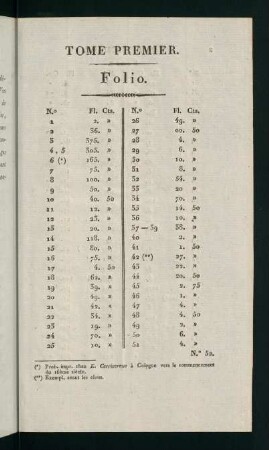 TOME PREMIER.
Folio.
N.º Fl. Cts.
1 2. »
2 36. »
3 375. »
4, 5 305. »
6 (*) 165. »
7 75. »
8 100. »
9 30. »
10 40. 50
11 12. »
12 23. »
13 20. »
14 118. »
15 80. »
16 75. »
17 4. 50
18 61. »
19 39. »
20 31. »
21 44. »
22 34. »
23 19. »
24 39. »
25 10. »
N.º Fl. Cts.
26 49. »
27 50
28 4. »
29 6. »
30 10. »
31 8. »
32 54. »
33 20 »
34 70. »
35 14. 50
36 10. »
37 — 39 38. »
40 »
41 1. 50
42 (**) 27. »
43 »
44 20. 50
45 2. 75
46 3. »
47 4. »
48 4. »
49 4. »
50 6. »
51 4. »
N.º 52.
(*) Prob. impr. chez à Cologne vers le commencement
du 16ème siècle.
(**) Exempl. avant les